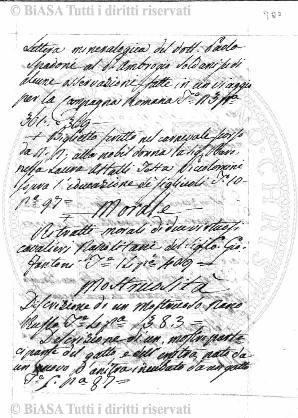 © BiASA Tutti i diritti riservati
Lettera mineralogica del dott. Paolo
Spadoni al P. Ambrogio Soldani di
alcune osservazioni fatte in un viaggio
per la campagna Romana T. 3 pa.
361 = 369 =
+ Biglietto scritto nel carnevale scorso
da N. N. alla nobil donna la Sig. Mar.
nella Laura Astalli Piccolomini
sopra l'educazione de' figliuoli T. 10
pa. 97 =
+ Morale
Ritratti morali di due virtuosi
cavalieri Napoletani del Sig. Gio.
Fantoni T. 12 pa. 409 =
Mostruosità
Descrizione di un mostruoso Nano
Russo T. pa. 383 =
Descrizione di un mostro parte
cipante del gatto e dell'anitra nato da
un uovo d'anitra incubato da un gatto
T. 5. pa. 87 =
© BiASA Tutti i diritti riservati